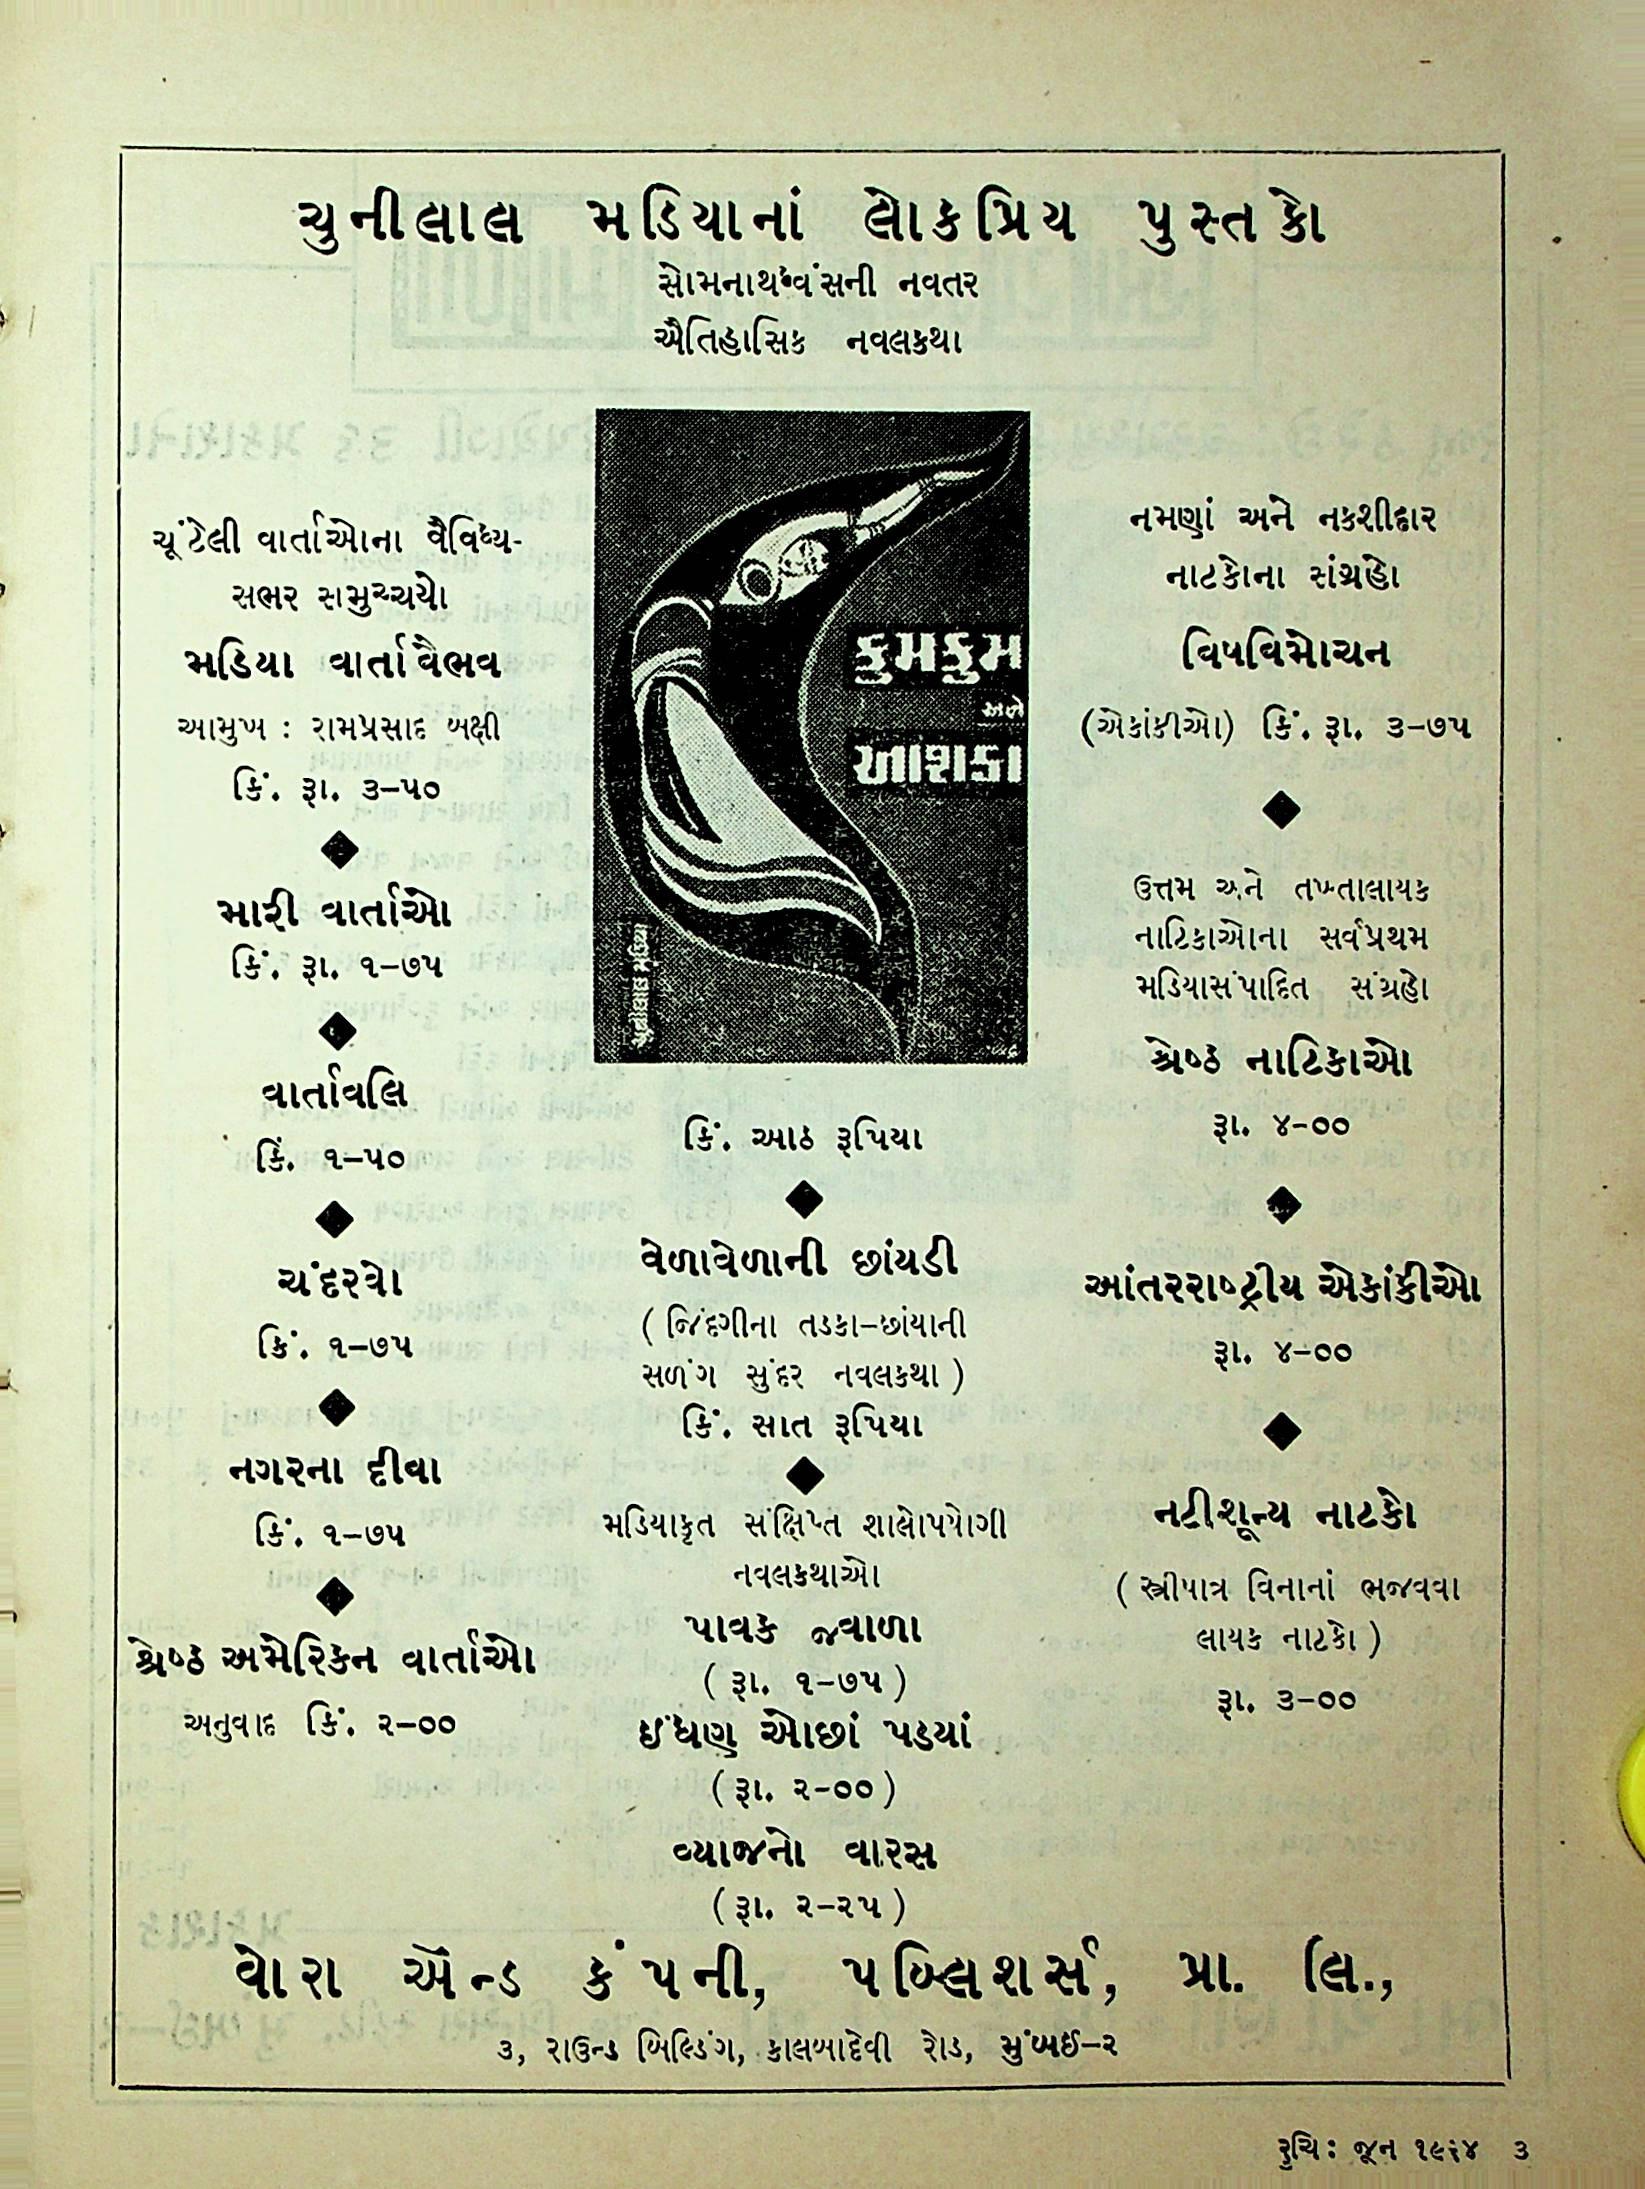 ચુનીલાલ મડિયાનાં લોકપ્રિય પુસ્તકો
સોમનાથધ્વંસની નવતર
ઐતિહાસિક નવલકથા
ચૂંટેલી વાર્તાઓના વૈવિધ્ય-
સભર સમુચ્ચયો
મડિયા વાર્તાવૈભવ
આમુખ : રામપ્રસાદ બક્ષી
કિં. રૂા. ૩-૫૦
મારી વાર્તાઓ
કિં. રૂા. ૧-૭૫
વાર્તાવલિ
કિં. ૧-૫૦
ચંદરવો
કિં. ૧-૭૫
નગરના દીવા
કિં. ૧-૭૫
શ્રેષ્ઠ અમેરિકન વાર્તાઓ
અનુવાદ કિં. ૨-૦૦
કુમકુમ
અને
આશકા
ચુનીલાલ મડિયા
કિં. આઠ રૂપિયા
વેળાવેળાની છાંયડી
( જિંદગીના તડકા-છાંયાની
સળંગ સુંદર નવલકથા )
કિં. સાત રૂપિયા
મડિયાકૃત સંક્ષિપ્ત શાલોપયોગી
નવલકથાઓ
પાવક જ્વાળા
( રૂા. ૧-૭૫ )
ઇંધણ ઓછાં પડયાં
( રૂા. ૨-૦૦ )
વ્યાજનો વારસ
( રૂા. ૨-૨૫ )
નમણાં અને નકશીદાર
નાટકોના સંગ્રહો
વિષવિમોચન
(એકાંકીઓ) કિં. રૂા. ૩-૭૫
ઉત્તમ અને તખ્તાલાયક
નાટિકાઓના સર્વપ્રથમ
મડિયાસંપાદિત સંગ્રહો
શ્રેષ્ઠ નાટિકાઓ
રૂા. ૪-૦૦
આંતરરાષ્ટ્રીય એકાંકીઓ
રૂા. ૪-૦૦
નટીશૂન્ય નાટકો
( સ્ત્રીપાત્ર વિનાનાં ભજવવા
લાયક નાટકો )
રૂા. ૩-૦૦
વોરા ઍન્ડ કંપની, પબ્લિશર્સ, પ્રા. લિ.,
૩, રાઉન્ડ બિલ્ડિંગ, કાલબાદેવી રોડ, મુંબઈ-૨
રુચિ : જૂન ૧૯૬૪ ૩